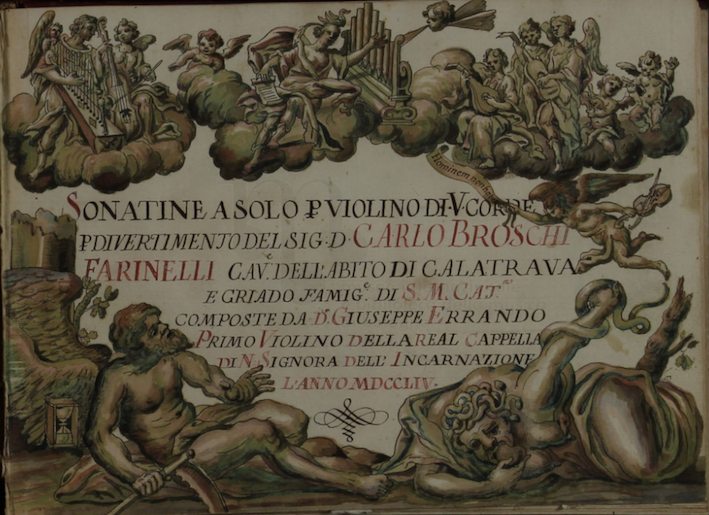 Hominem non
SONATINE A SOLO P VIOLINO DI V CORDE
P DIVERTIMENTO DEL SIG. D. CARLO BROSCHI
FARINELLI CAVe. DELL'ABITO DI CALATRAVA
E GRIADO FAMIGe. DI S. M. CAT.ca
COMPOSTE DA Dn. GIUSEPPE ERRANDO
PRIMO VIOLINO DELLA REAL CAPPELLA
DI N. SIGNORA DELL' INCARNAZIONE
L'ANNO MDCCLIV.